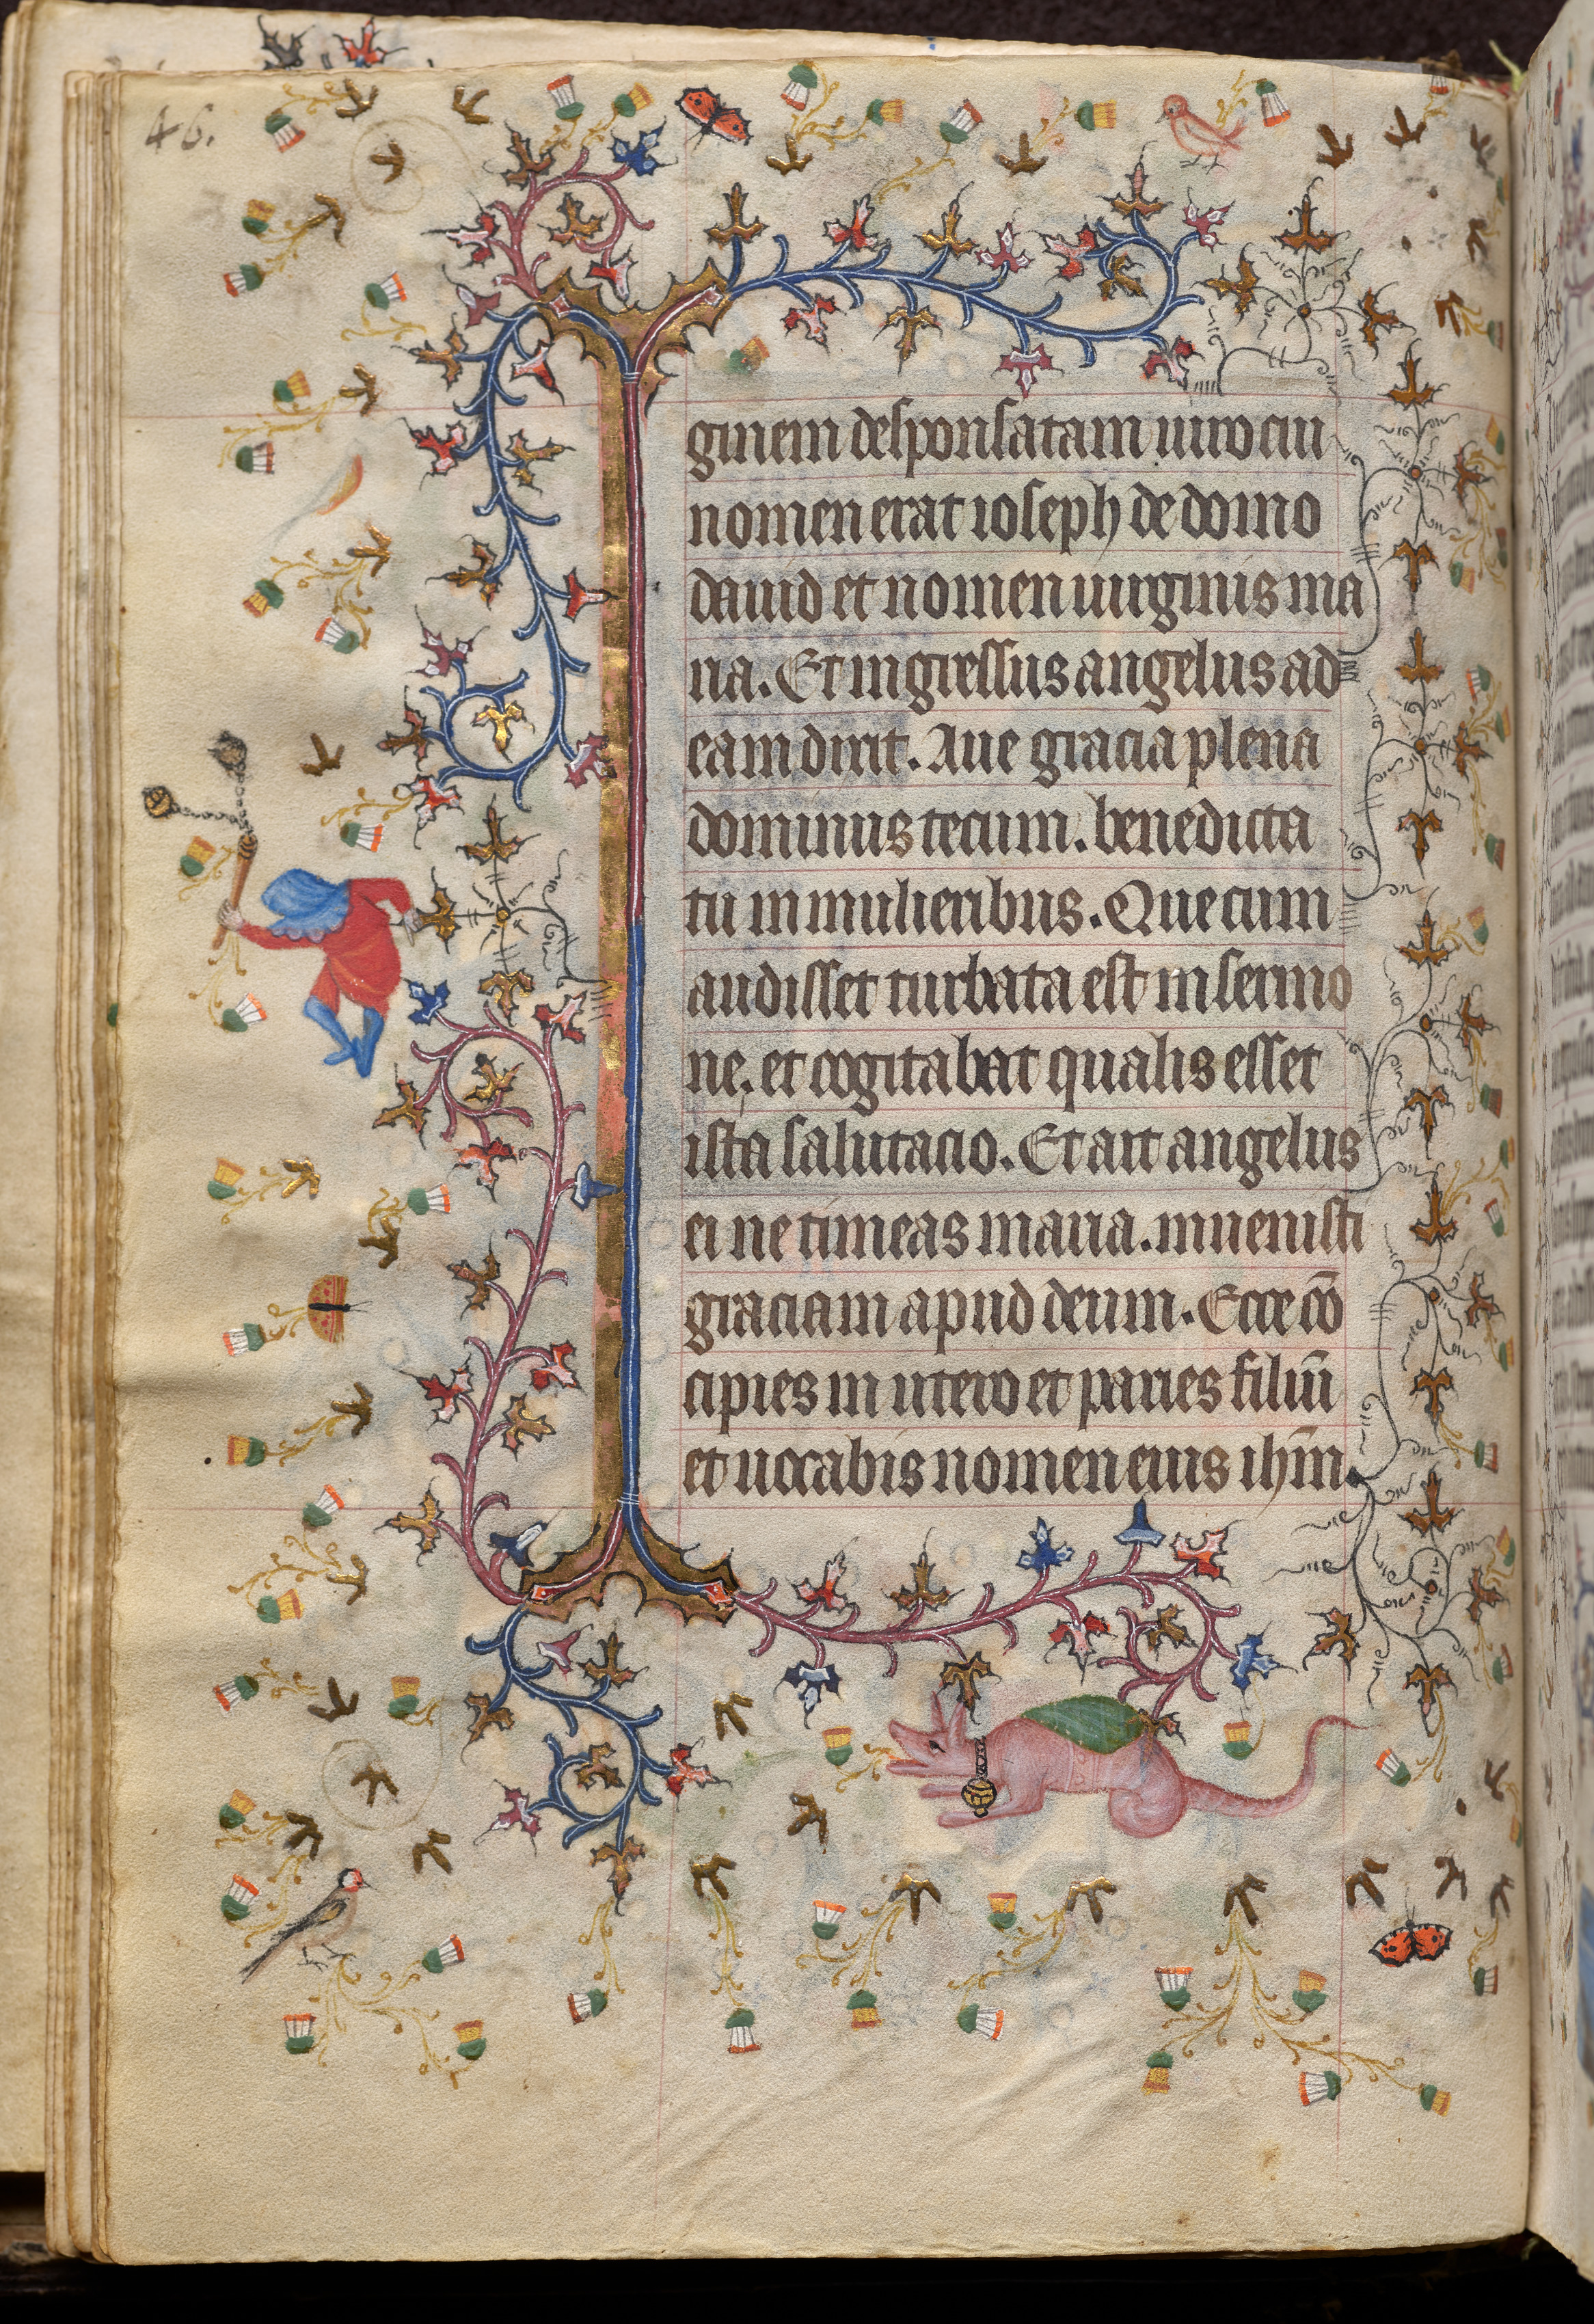 46.
ginem desponsatam uiro cui
nomen erat ioseph de domo
dauid et nomen uirginis ma
ria. Et ingressus angelus ad
eam dixit. Aue gracia plena
dominus tecum. benedicta
tu in mulieribus. Que cum
audisset turbata est in sermo
ne. et cogitabat qualis esset
ista salutacio. Et ait angelus
ei ne timeas maria. inuenisti
graciam apud deum. Ecce cō
cipies in utero et paries filiū
et uocabis nomen eius ihm̄